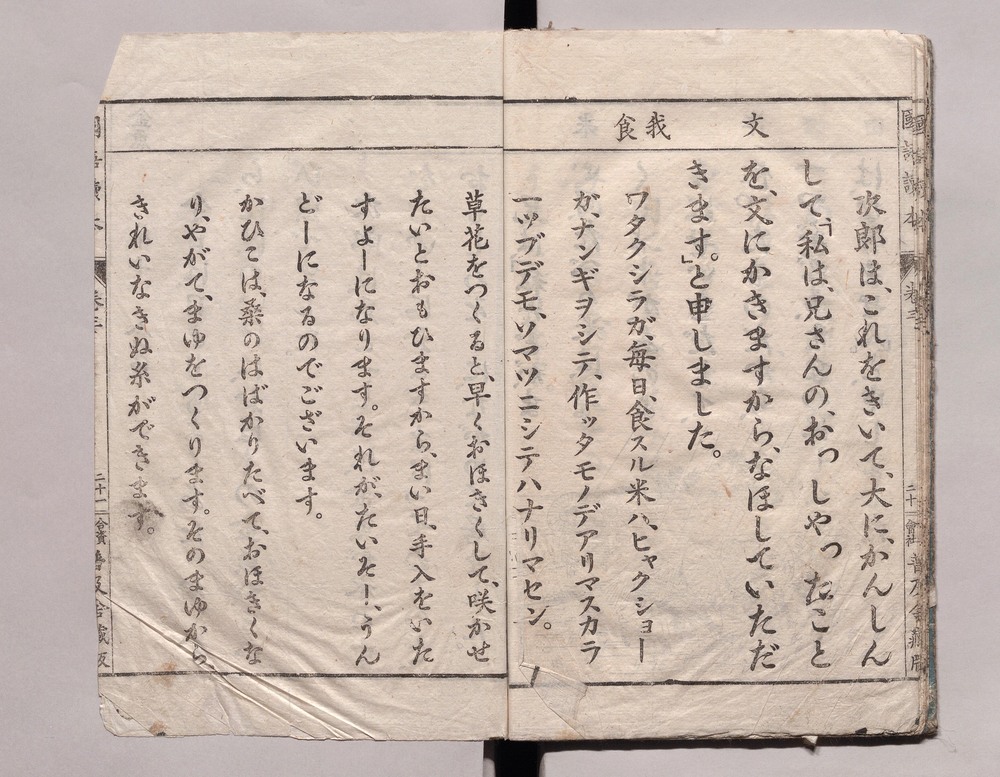 國語讀本
卷三
二十
會社 普及舍藏版
文
我
食
次郎は、これをきいて、大に、かんしん
して「私は、兄さんの、おっしやったこと
を、文にかきますから、なほしていただ
きます。」と申しました。
ワタクシラガ、毎日、食スル米ハ、ヒャクショー
ガ、ナンギヲシテ、作ッタモノデアリマスカラ
一ツブデモ、ソマツニシテハナリマセン。
草花をつくると、早くおほきくして、咲かせ
たいとおもひますから、まい日、手入をいた
すよーになります。それが、たいそー、うん
どーになるのでございます。
かひこは、桑のはばかりたべて、おほきくな
り、やがて、まゆをつくります。そのまゆから、
きれいなきぬ糸ができます。
國語讀本
卷三
二十一
會資 普及舍藏版